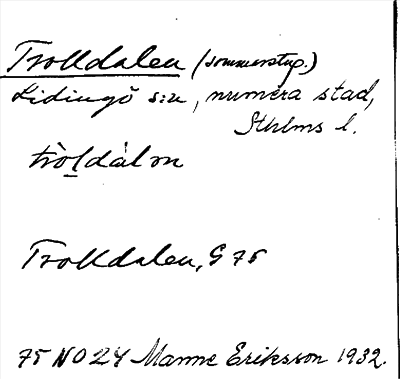 Trolldalen (sommarstug.)
Lidingö s:n, numera stad,
Sthlms l.
tròl̠dál ən
Trolldalen, G 75
75 NO 24 Manne Eriksson 1932.